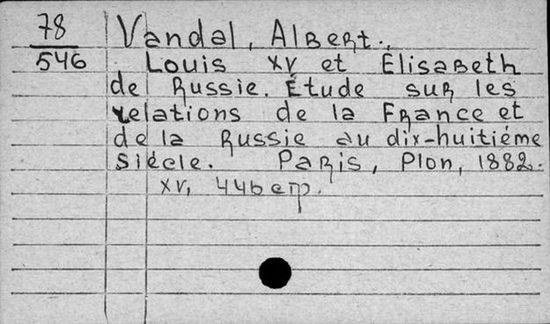 78
546
Vandal, Albert.,
Louis XV et Élisabeth
de Russie. Étude sur les
relations de la France et
de la Russie au dix-huitiéme
siécle. Paris, Plon, 1882.
XV, 446 стр.